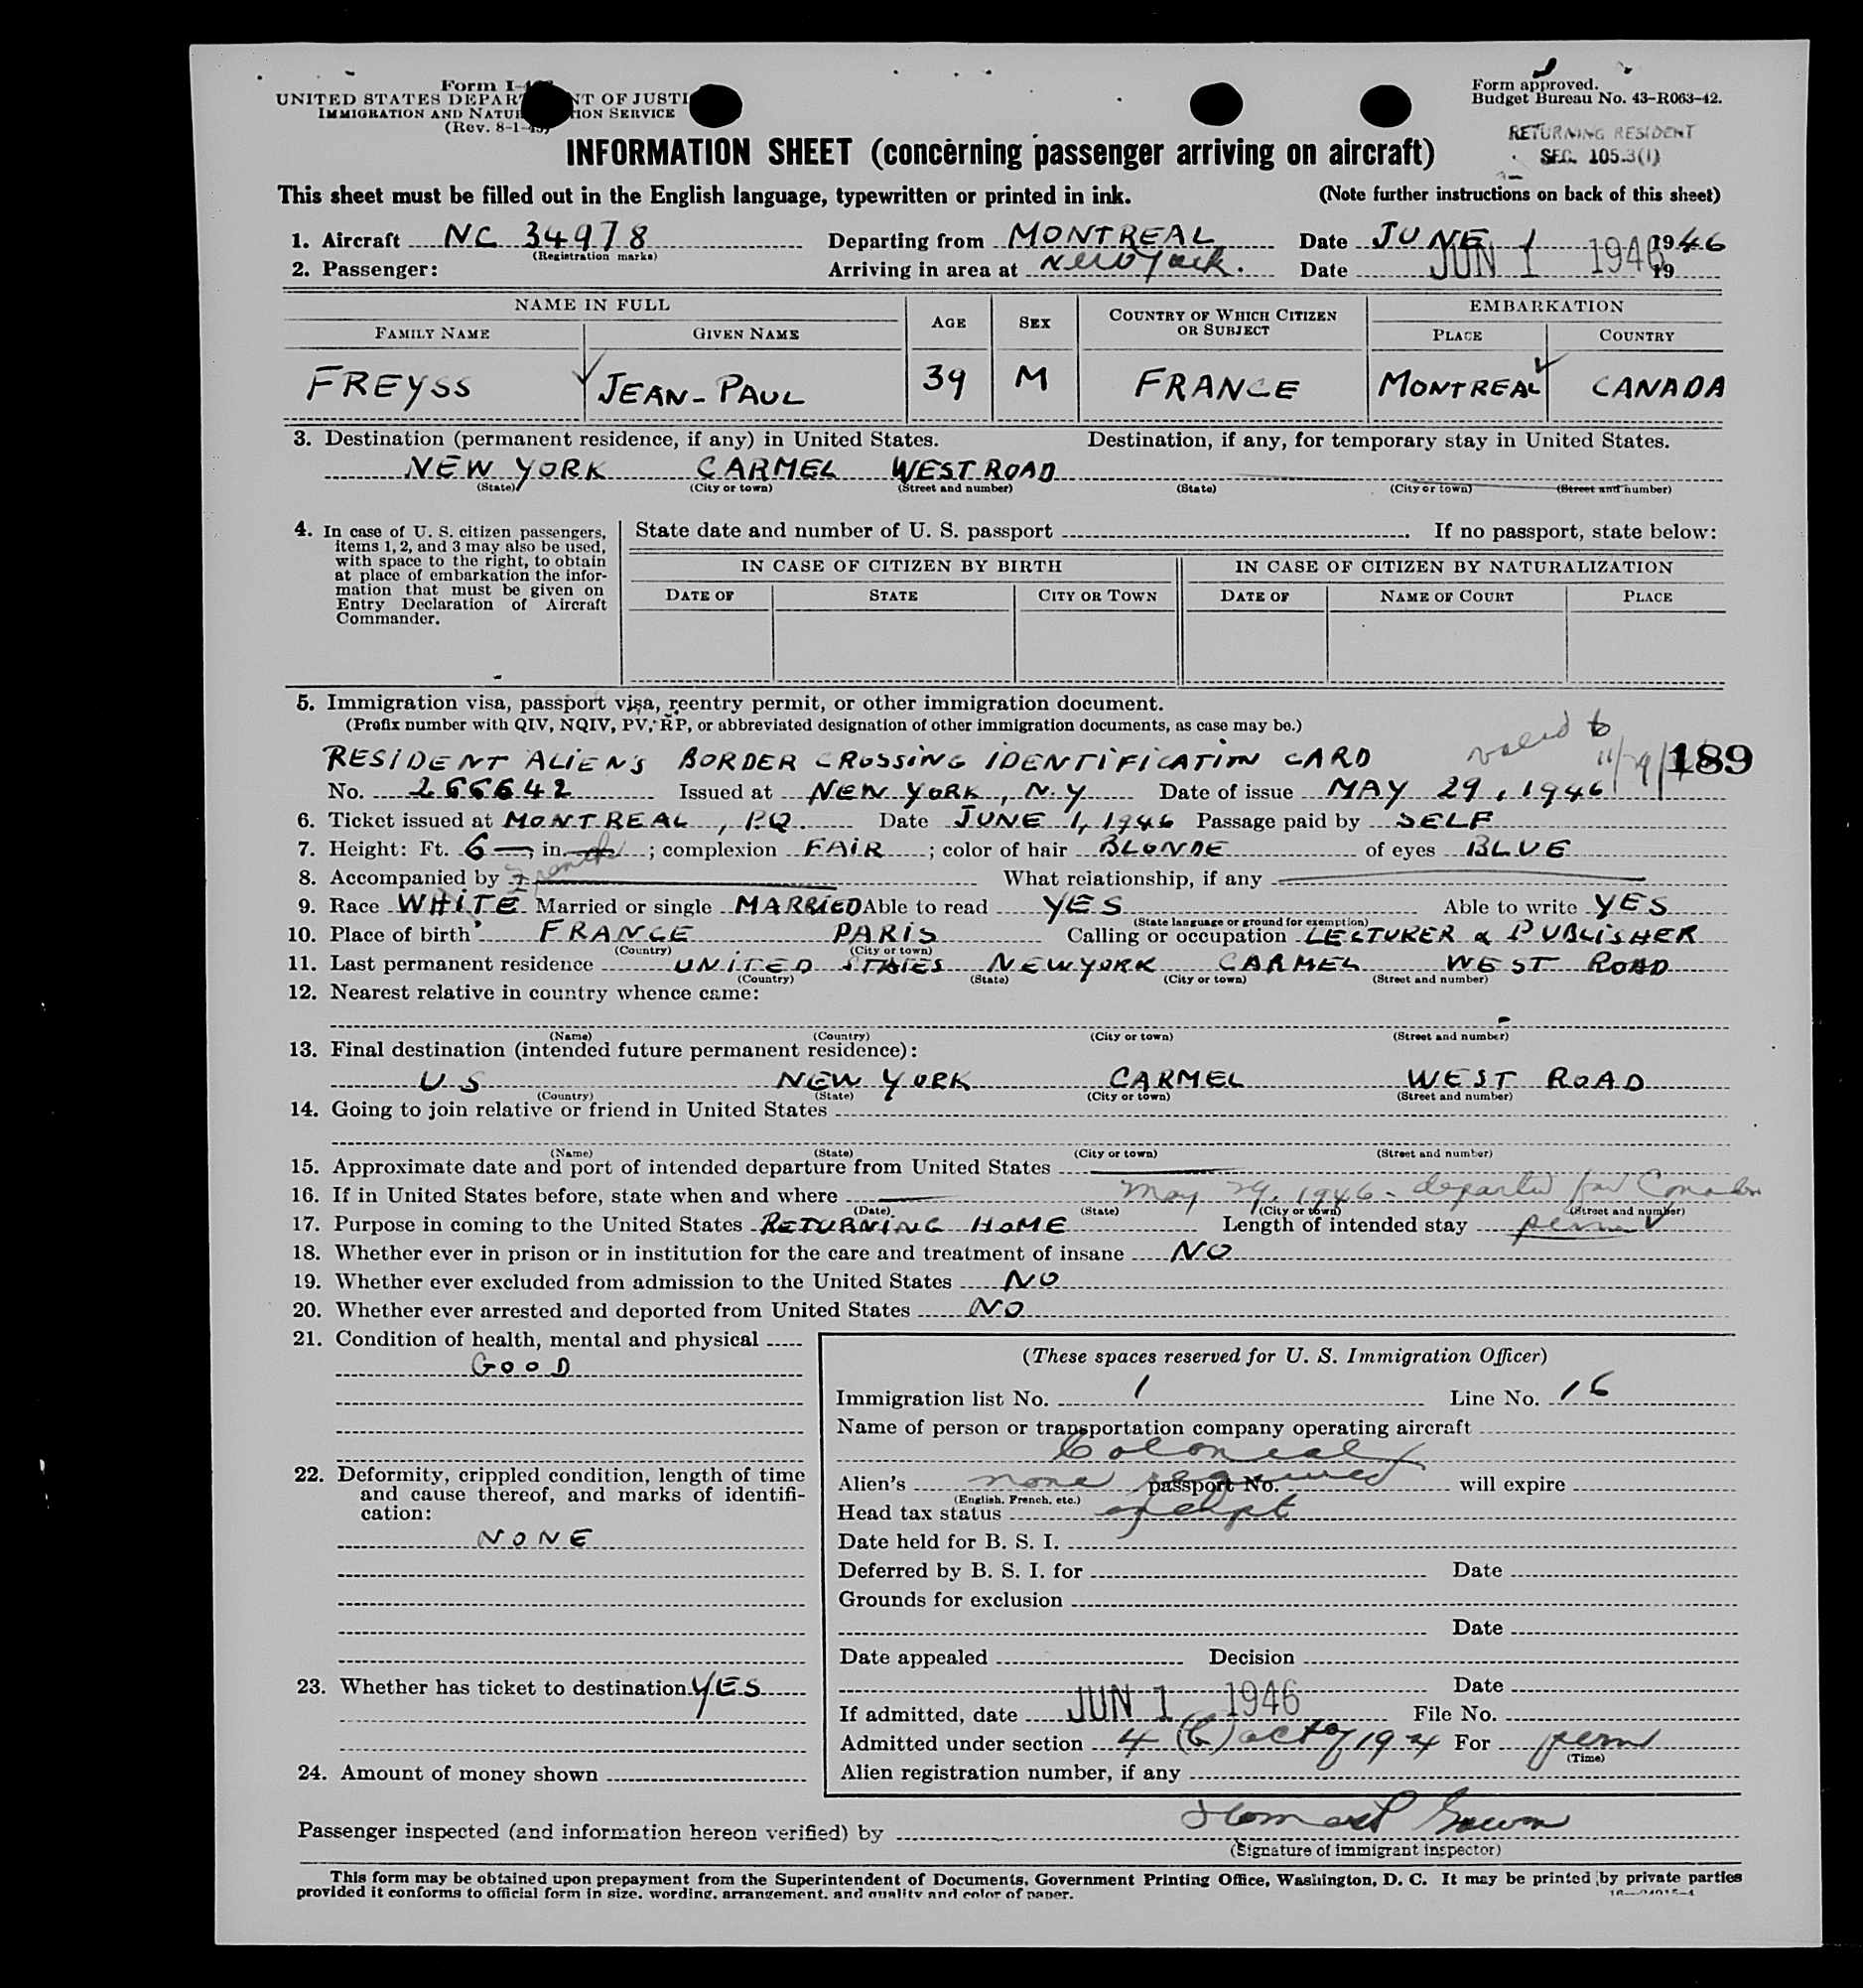 Form I-
UNITED STATES DEPAR NT OF JUSTI
IMMIGRATION AND NATU ION SERVICE
(Rev. 8-1-45)
Form approved.
Budget Bureau No. 43-R063-42.
RETURNING RESIDENT
SEC. 105.3(1)
INFORMATION SHEET (concerning passenger arriving on aircraft)
This sheet must be filled out in the English language, typewritten or printed in ink. (Note further instructions on back of this sheet)
1. Aircraft NC 34978 Departing from MONTREAL Date JUNE 1 1946
(Registration marks)
2. Passenger: Arriving in area at New York. Date JUN 1 1946 19
NAME IN FULL AGE SEX COUNTRY OF WHICH CITIZEN OR SUBJECT EMBARKATION
FAMILY NAME GIVEN NAME PLACE COUNTRY
FREYSS JEAN-PAUL 39 M FRANCE MONTREAL CANADA
3. Destination (permanent residence, if any) in United States. Destination, if any, for temporary stay in United States.
NEW YORK CARMEL WEST ROAD
(State) (City or town) (Street and number) (State) (City or town) (Street and number)
4. In case of U. S. citizen passengers,
items 1, 2, and 3 may also be used,
with space to the right, to obtain
at place of embarkation the infor-
mation that must be given on
Entry Declaration of Aircraft
Commander.
State date and number of U. S. passport . If no passport, state below:
IN CASE OF CITIZEN BY BIRTH IN CASE OF CITIZEN BY NATURALIZATION
DATE OF STATE CITY OR TOWN DATE OF NAME OF COURT PLACE
5. Immigration visa, passport visa, reentry permit, or other immigration document.
(Prefix number with QIV, NQIV, PV, RP, or abbreviated designation of other immigration documents, as case may be.)
RESIDENT ALIENS BORDER CROSSING IDENTIFICATION CARD valid to 11/29/ 189
No. 266642 Issued at NEW YORK, N.Y Date of issue MAY 29, 1946
6. Ticket issued at MONTREAL, P.Q. Date JUNE 1, 1946 Passage paid by SELF
7. Height: Ft. 6 —, in. ; complexion FAIR ; color of hair BLONDE of eyes BLUE
8. Accompanied by What relationship, if any
9. Race WHITE Married or single MARRIED Able to read YES Able to write YES
(State language or ground for exemption)
10. Place of birth FRANCE PARIS Calling or occupation LECTURER & PUBLISHER
(Country) (City or town)
11. Last permanent residence UNITED STATES NEW YORK CARMEL WEST ROAD
(Country) (State) (City or town) (Street and number)
12. Nearest relative in country whence came:
(Name) (Country) (City or town) (Street and number)
13. Final destination (intended future permanent residence):
U S NEW YORK CARMEL WEST ROAD
(Country) (State) (City or town) (Street and number)
14. Going to join relative or friend in United States
(Name) (State) (City or town) (Street and number)
15. Approximate date and port of intended departure from United States
16. If in United States before, state when and where May 29, 1946 - departed for Canada
(Date) (State) (City or town) (Street and number)
17. Purpose in coming to the United States RETURNING HOME Length of intended stay perm
18. Whether ever in prison or in institution for the care and treatment of insane NO
19. Whether ever excluded from admission to the United States NO
20. Whether ever arrested and deported from United States NO
21. Condition of health, mental and physical
GOOD
22. Deformity, crippled condition, length of time
and cause thereof, and marks of identifi-
cation:
NONE
23. Whether has ticket to destination YES
24. Amount of money shown
(These spaces reserved for U. S. Immigration Officer)
Immigration list No. 1 Line No. 16
Name of person or transportation company operating aircraft
Colonial
Alien's none required passport No. will expire
(English, French, etc.)
Head tax status exempt
Date held for B. S. I.
Deferred by B. S. I. for Date
Grounds for exclusion
Date
Date appealed Decision
Date
If admitted, date JUN 1 1946 File No.
Admitted under section 4 (b) act of 1924 For perm
(Time)
Alien registration number, if any
Passenger inspected (and information hereon verified) by
(Signature of immigrant inspector)
This form may be obtained upon prepayment from the Superintendent of Documents, Government Printing Office, Washington, D. C. It may be printed by private parties
provided it conforms to official form in size, wording, arrangement, and quality and color of paper.